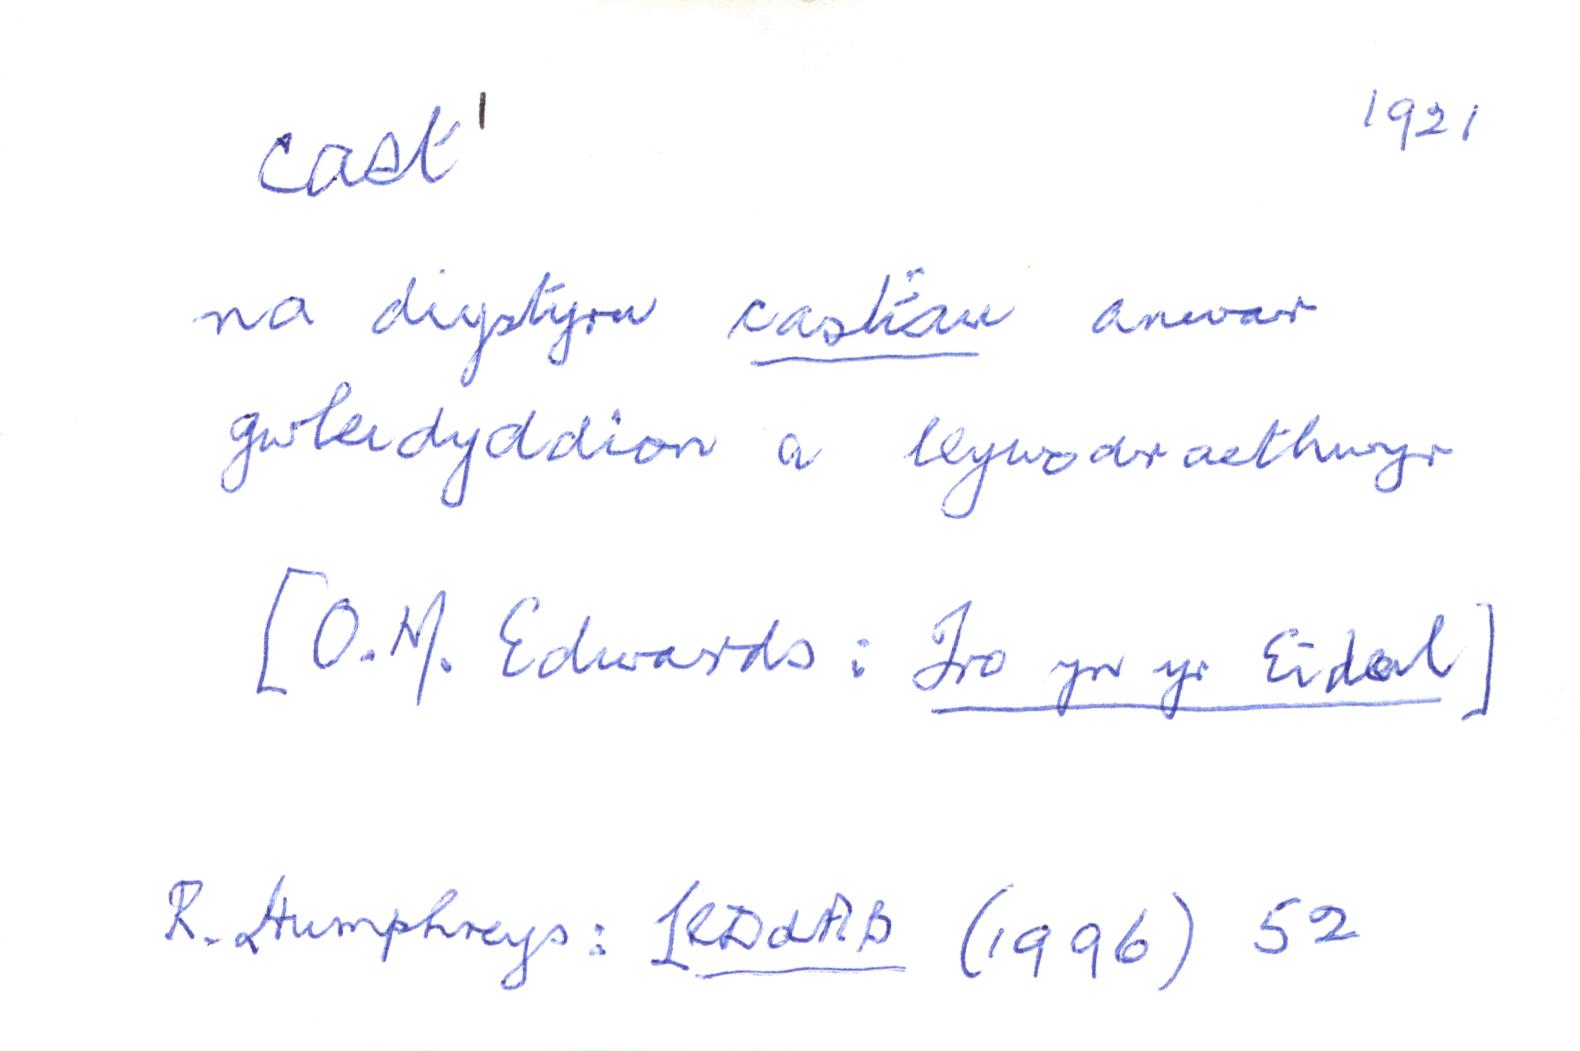 cast¹ 1921
na diystyru castïau anwar
gwleidyddion a llywodraethwyr
[O.M. Edwards: Tro yn yr Eidal]
R. Humphreys: (1996) 52